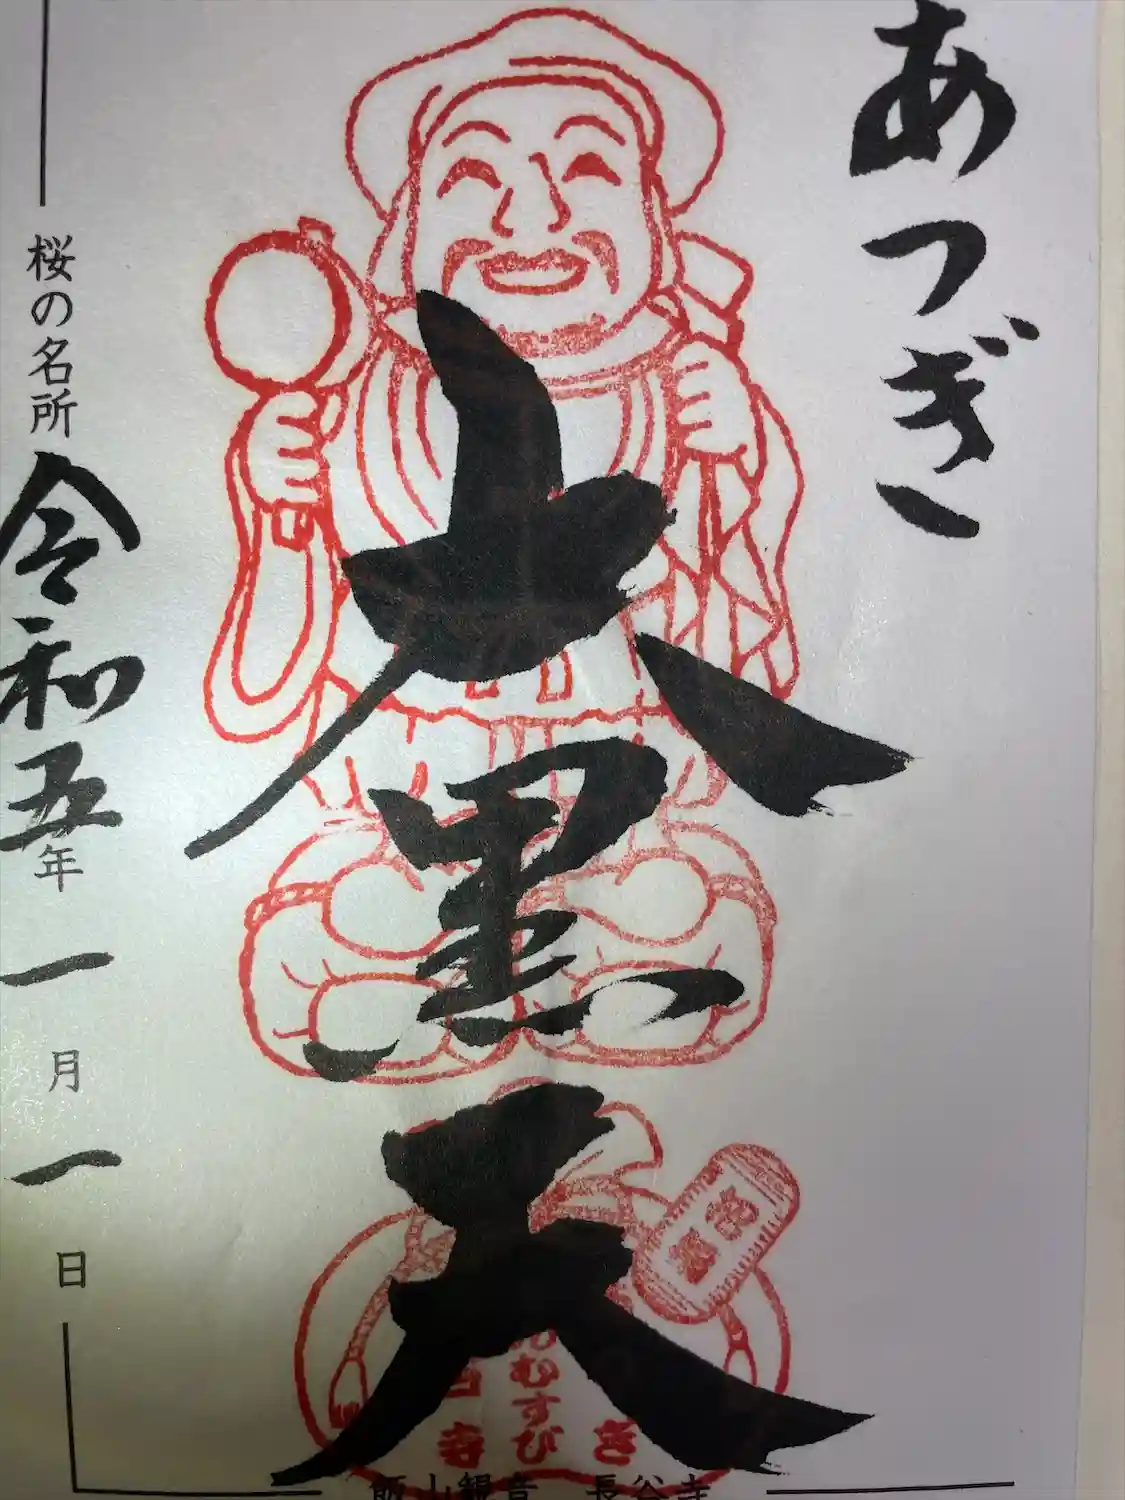 あつぎ
大黒天
むすび
寺
き
桜の名所
令和五年一月一日
飯山観音 長谷寺